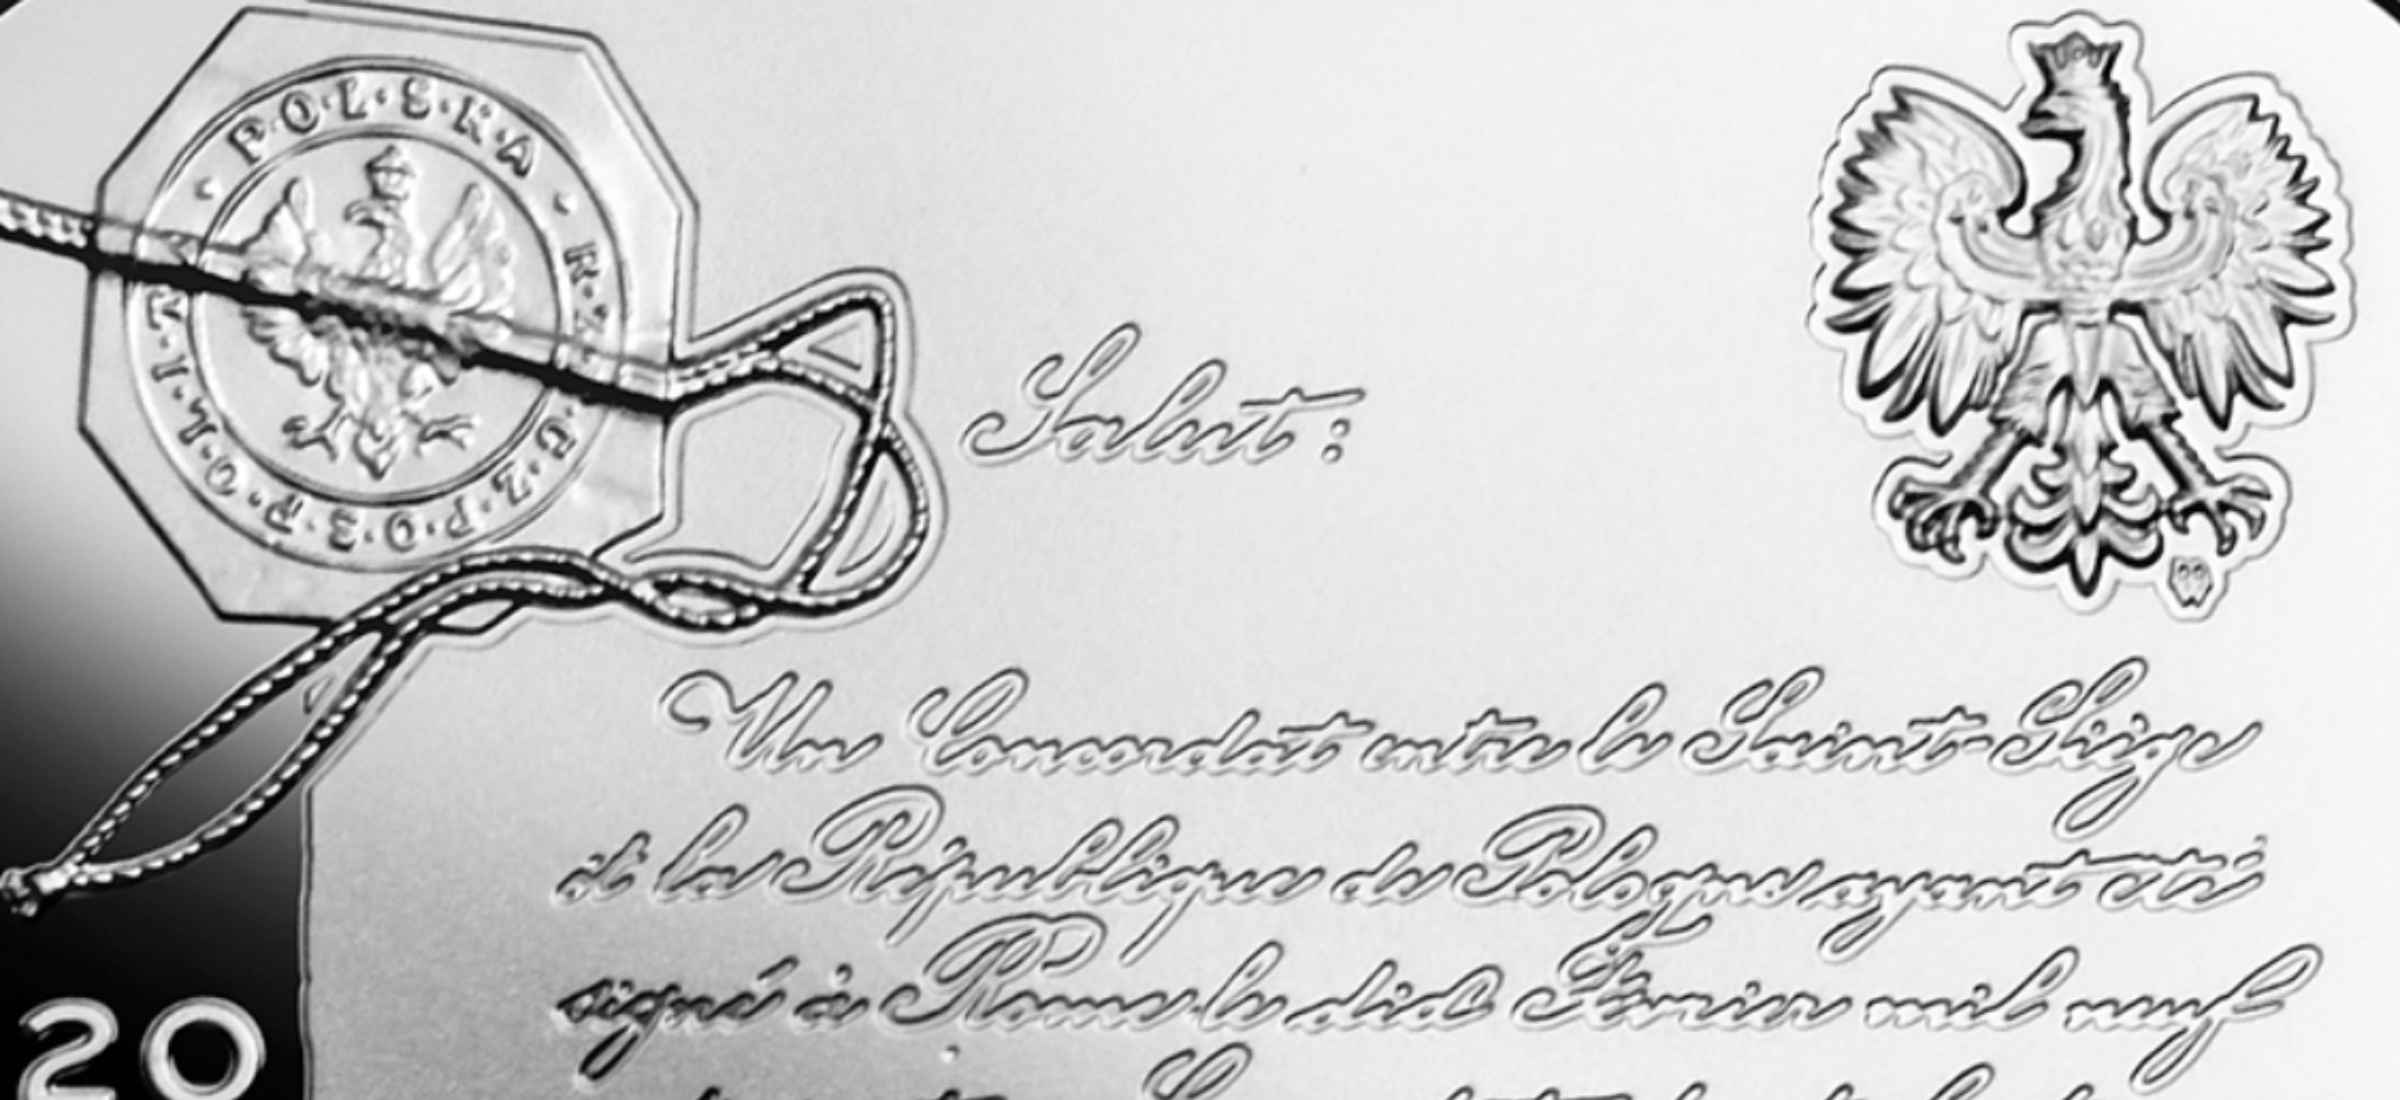 POLSKA · RZECZPOSPOLITA
Salut :
Un Concordat entre le Saint-Siège
et la République de Pologne ayant été
signé à Rome le dix Février mil neuf
20